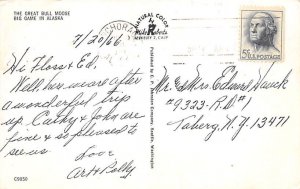 THE GREAT BULL MOOSE
BIG GAME IN ALASKA
NATURAL COLOR
Mike Roberts
BERKELEY 2, CALIF
5¢ U.S. POSTAGE
7/20/66
Hi Floss & Ed,
Well here we are after
a wonderful trip
up. Cathy & John are
fine & so pleased to
see us.
Love
Art & Bobby
Mr & Mrs Edward Hauck
#9333-R.D#1
Taberg N.Y. 13471
C9850